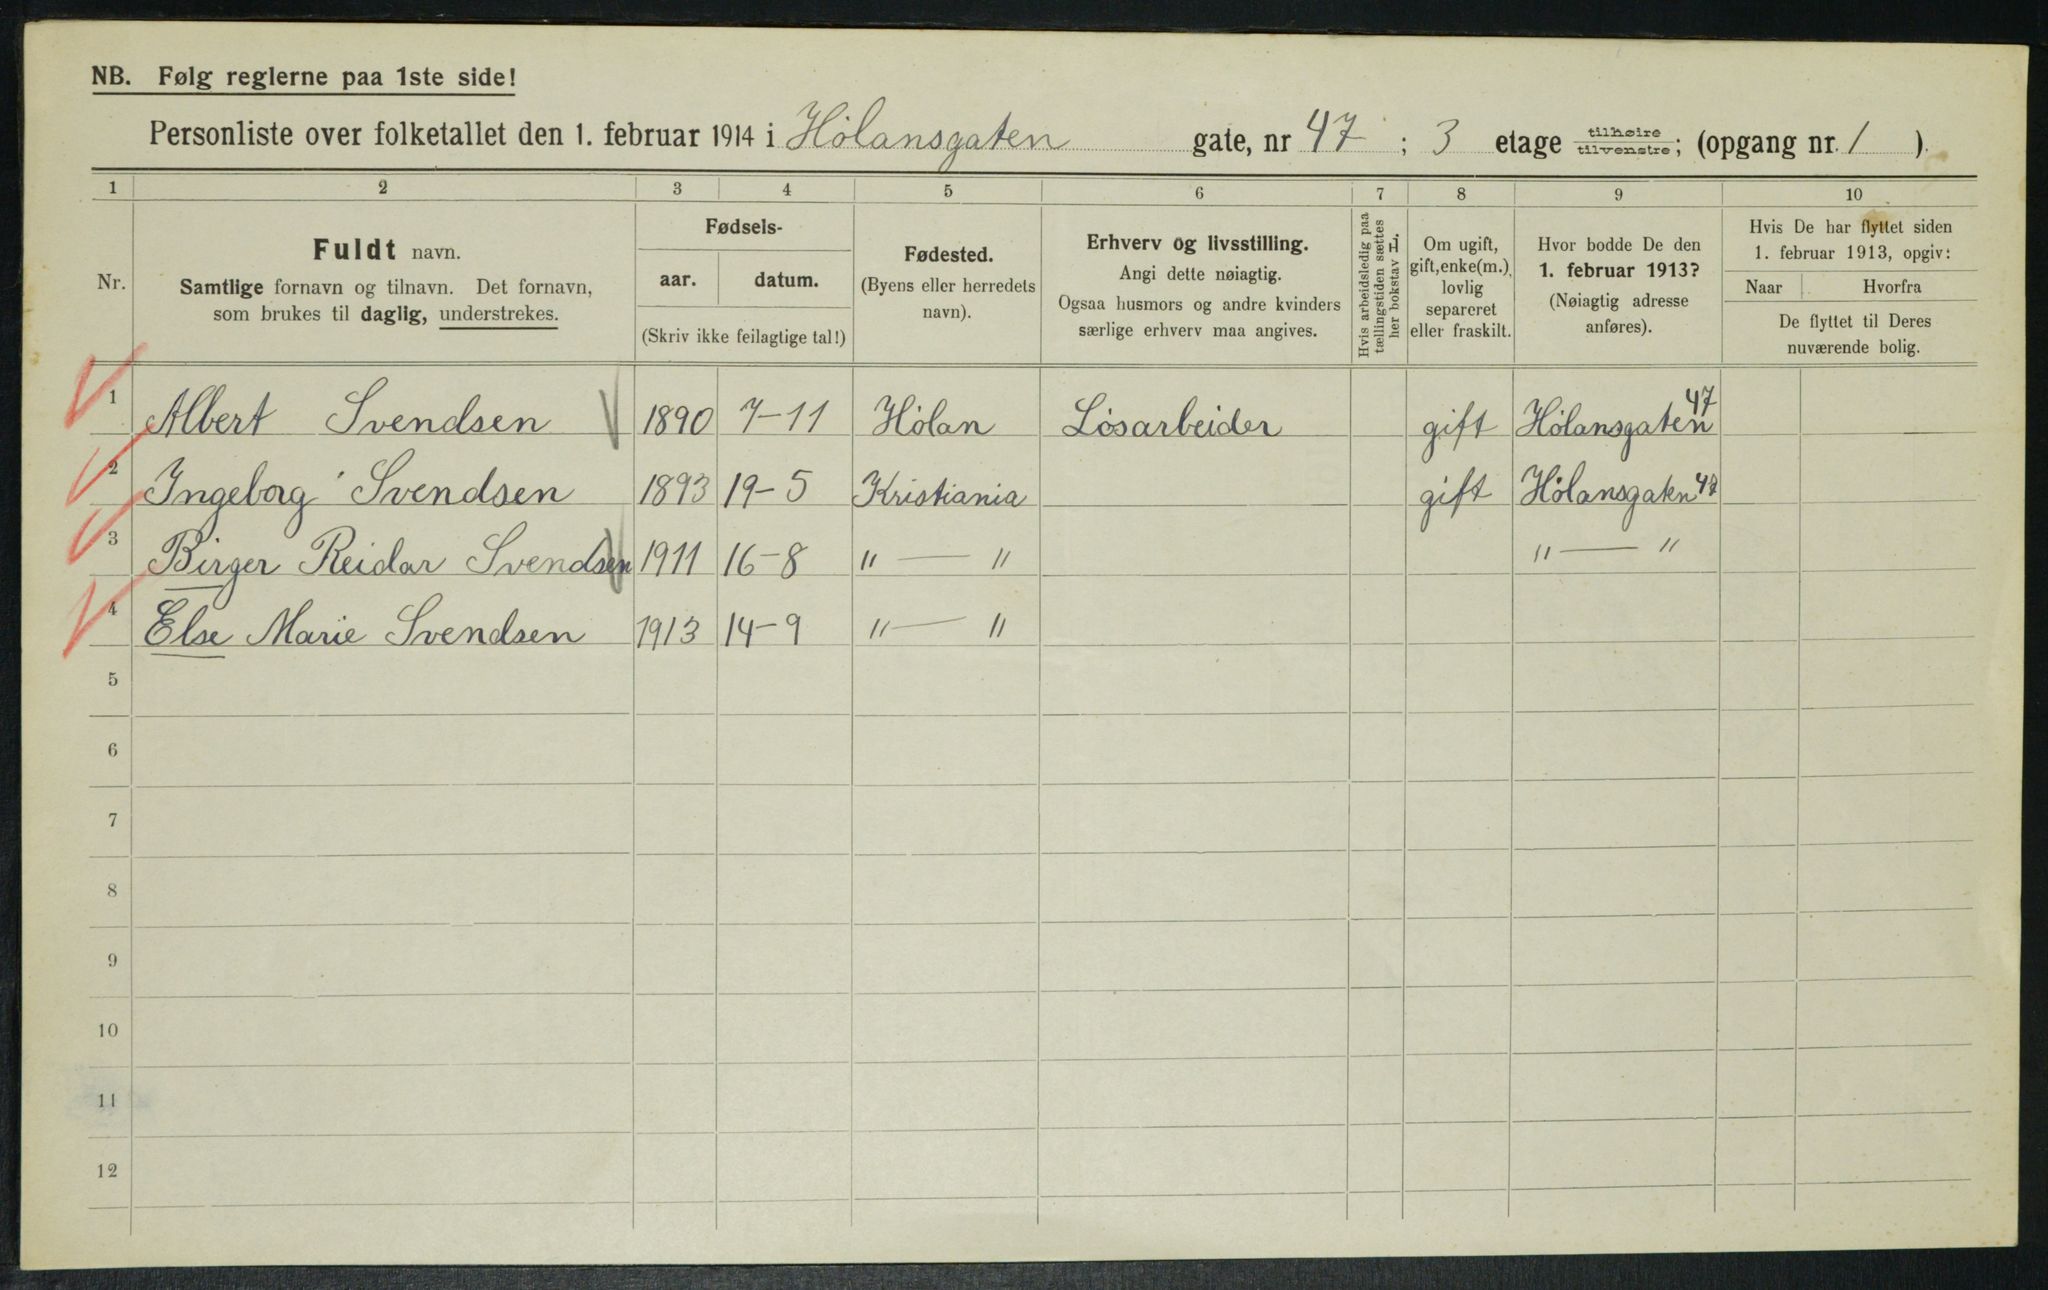 NB. Følg reglerne paa 1ste side!
Personliste over folketallet den 1. februar 1914 i Hølansgaten gate, nr 47 ; 3 etage tilhøire / tilvenstre; (opgang nr. 1 ).
1 2 3 4 5 6 7 8 9 10
Nr.
Fuldt navn.
Samtlige fornavn og tilnavn. Det fornavn,
som brukes til daglig, understrekes.
Fødsels-
aar. datum.
(Skriv ikke feilagtige tal!)
Fødested.
(Byens eller herredets
navn).
Erhverv og livsstilling.
Angi dette nøiagtig.
Ogsaa husmors og andre kvinders
særlige erhverv maa angives.
Hvis arbeidsledig paa
tællingstiden sættes
her bokstav L.
Om ugift,
gift, enke(m.),
lovlig
separeret
eller fraskilt.
Hvor bodde De den
1. februar 1913?
(Nøiagtig adresse
anføres).
Hvis De har flyttet siden
1. februar 1913, opgiv:
Naar Hvorfra
De flyttet til Deres
nuværende bolig.
1 Albert Svendsen 1890 7-11 Hølan Løsarbeider gift Hølansgaten 47
2 Ingeborg Svendsen 1893 19-5 Kristiania gift Hølansgaten 47
3 Birger Reidar Svendsen 1911 16-8 " — " " — "
4 Else Marie Svendsen 1913 14-9 " — "
5
6
7
8
9
10
11
12